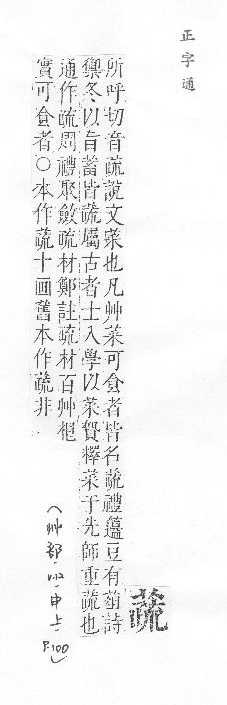 正字通
蔬
所呼切音疏說文菜也凡艸菜可食者皆名蔬禮籩豆有菹詩
禦冬以旨蓄皆蔬屬古者士入學以菜贄釋菜于先師重蔬也
通作疏周禮聚斂疏材鄭註疏材百艸根
實可食者○本作蔬十画舊本作蔬非
(艸部·四·申上·P.100)